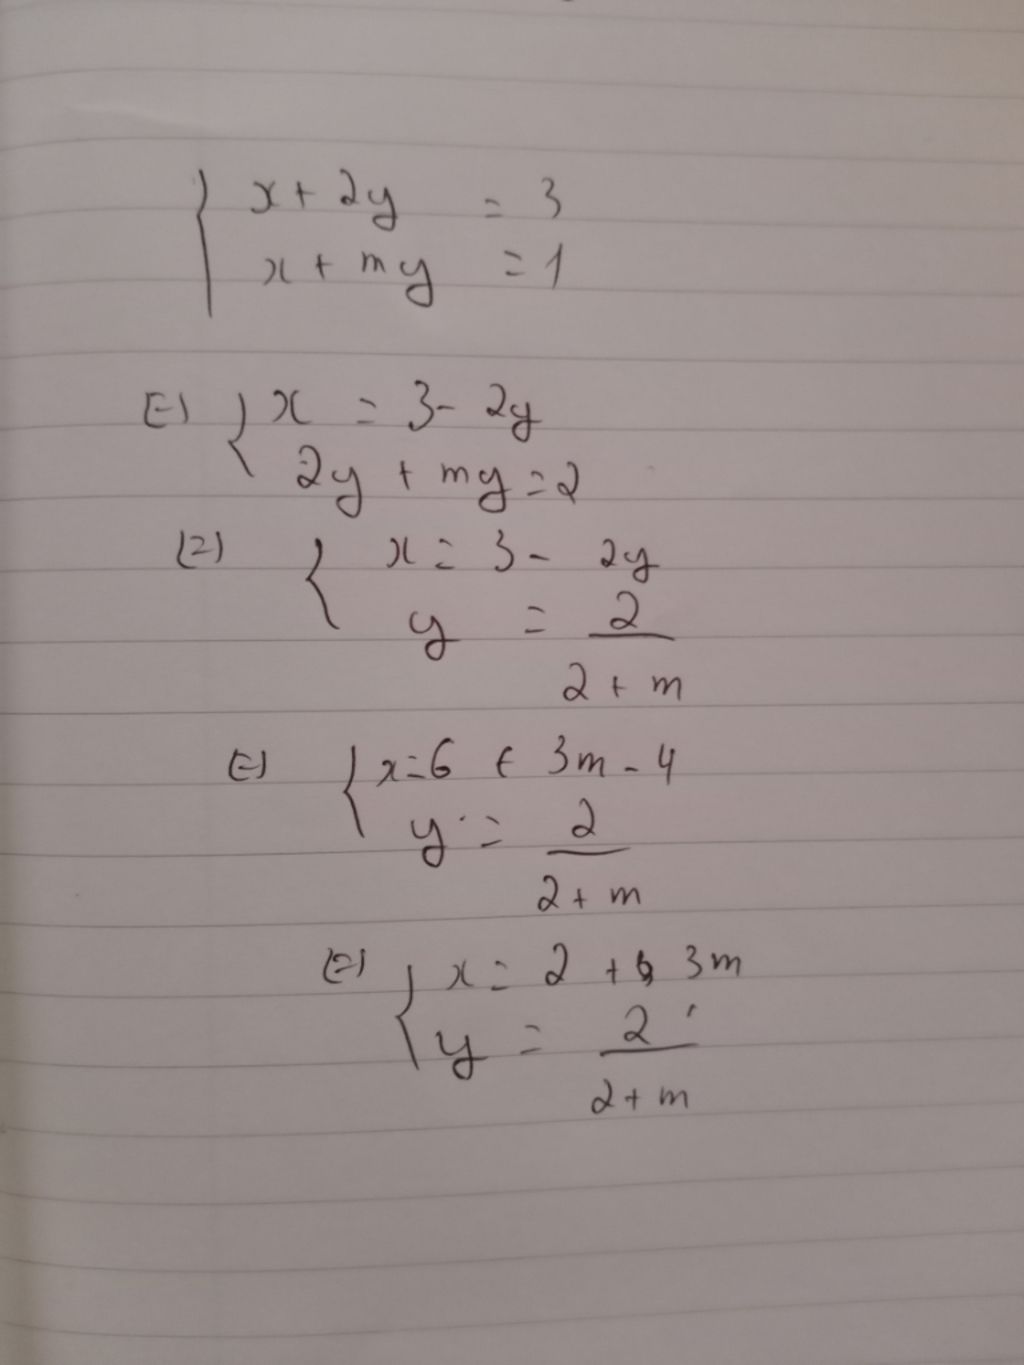 { x + 2y = 3
x + my = 1
(=) { x = 3 - 2y
2y + my = 2
(=) { x = 3 - 2y
y = 2 / (2 + m)
(=) { x = 6 + 3m - 4
y = 2 / (2 + m)
(=) { x = 2 + 3m
y = 2 / (2 + m)